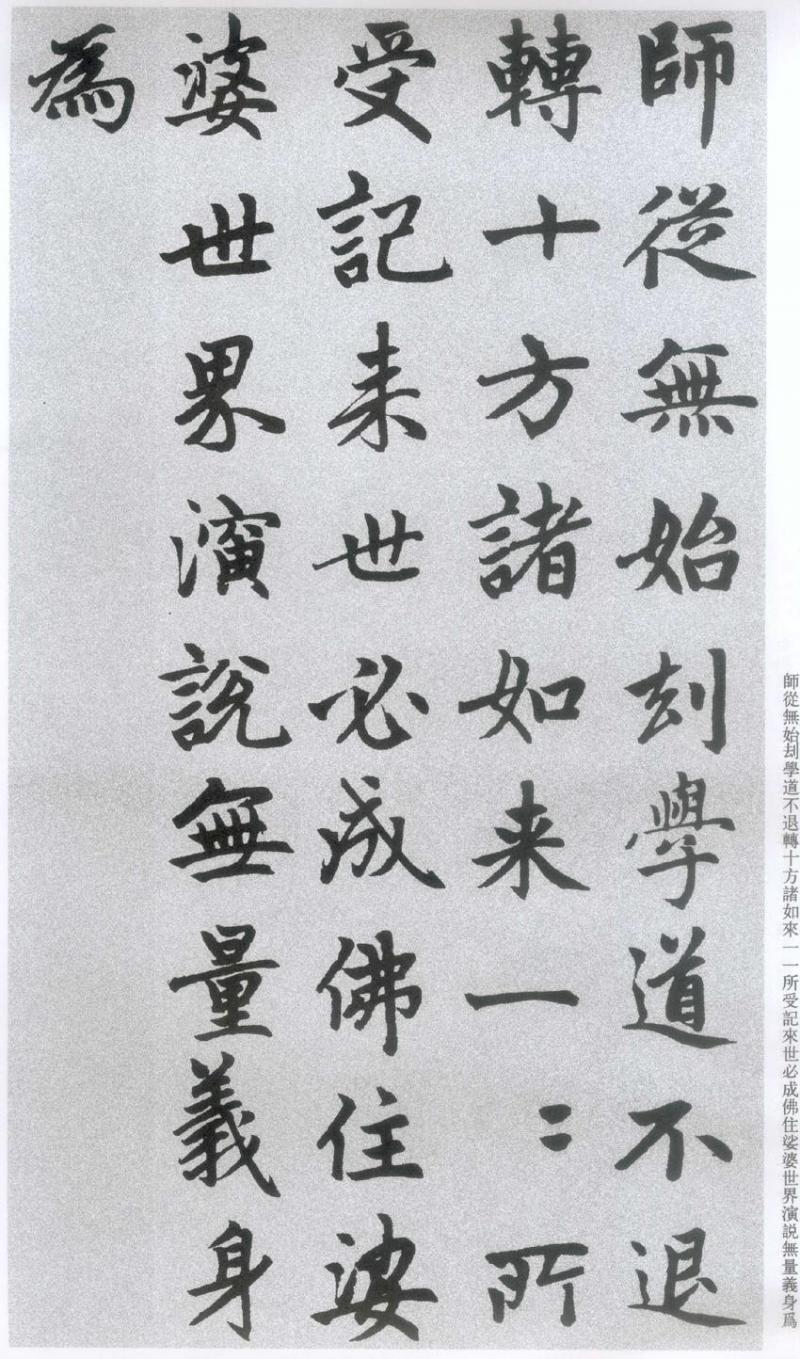 師從無始刦學道不退
轉十方諸如来一〻所
受記来世必成佛住娑
婆世界演說無量義身
為
師從無始刦學道不退轉十方諸如來一一所受記來世必成佛住娑婆世界演說無量義身爲